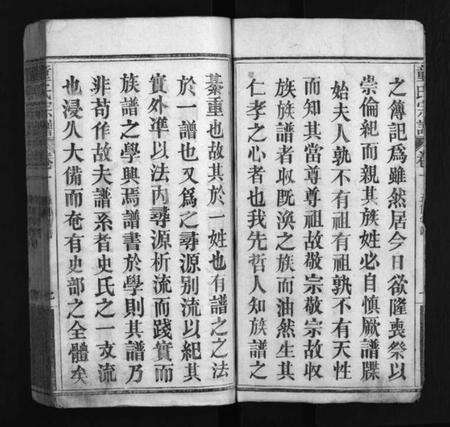 之簿記爲雖然居今日欲隆喪祭以
崇倫紀而親其族姓必自慎厥譜牒
始夫人孰不有祖有祖孰不有天性
而知其當尊尊祖故敬宗敬宗故収
族族譜者収既渙之族而油然生其
仁孝之心者也我先哲人知族譜之
綦重也故其於一姓也有譜之之法
於一譜也又爲之尋源别流以紀其
實外準以法内尋源析流而踐實而
族譜之學興焉譜書於學則其譜乃
非苟作故夫譜系者史氏之一支流
也浸久大備而奄有史部之全體矣
童氏宗譜
卷